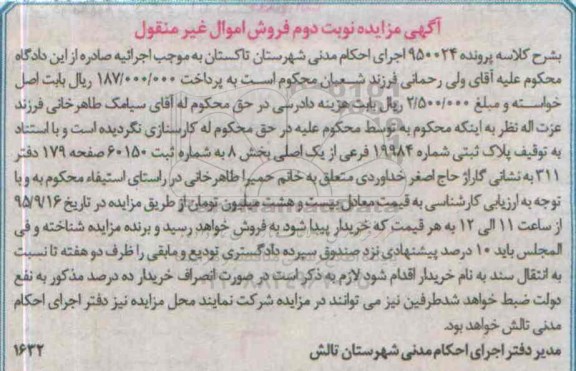 آگهی مزایده نوبت دوم فروش اموال غیر منقول
بشرح کلاسه پرونده ۹۵۰۰۲۴ اجرای احکام مدنی شهرستان تاکستان به موجب اجرائیه صادره از این دادگاه
محکوم علیه آقای ولی رحمانی فرزند شعبان محکوم است به پرداخت ۱۸۷/۰۰۰/۰۰۰ ریال بابت اصل
خواسته و مبلغ ۲/۵۰۰/۰۰۰ ریال بابت هزینه دادرسی در حق محکوم له آقای سیامک طاهرخانی فرزند
عزت اله نظر به اینکه محکوم به توسط محکوم علیه در حق محکوم له کارسازی نگردیده است و با استناد
به توقیف پلاک ثبتی شماره ۱۹۹۸۴ فرعی از یک اصلی بخش ۸ به شماره ثبت ۶۰۱۵۰ صفحه ۱۷۹ دفتر
۳۱۱ به نشانی گاراژ حاج اصغر خداوردی متعلق به خانم حمیرا طاهرخانی در راستای استیفاء محکوم به و با
توجه به ارزیابی کارشناسی به قیمت معادل بیست و هشت میلیون تومان از طریق مزایده در تاریخ ۹۵/۹/۱۶
از ساعت ۱۱ الی ۱۲ به هر قیمت که خریدار پیدا شود به فروش خواهد رسید و برنده مزایده شناخته و فی
المجلس باید ۱۰ درصد پیشنهادی نزد صندوق سپرده دادگستری تودیع و مابقی را ظرف دو هفته تا نسبت
به انتقال سند به نام خریدار اقدام شود لازم به ذکر است در صورت انصراف خریدار ده درصد مذکور به نفع
دولت ضبط خواهد شد طرفین نیز می توانند در مزایده شرکت نمایند محل مزایده نیز دفتر اجرای احکام
مدنی تالش خواهد بود.
مدیر دفتر اجرای احکام مدنی شهرستان تالش ۱۶۳۲